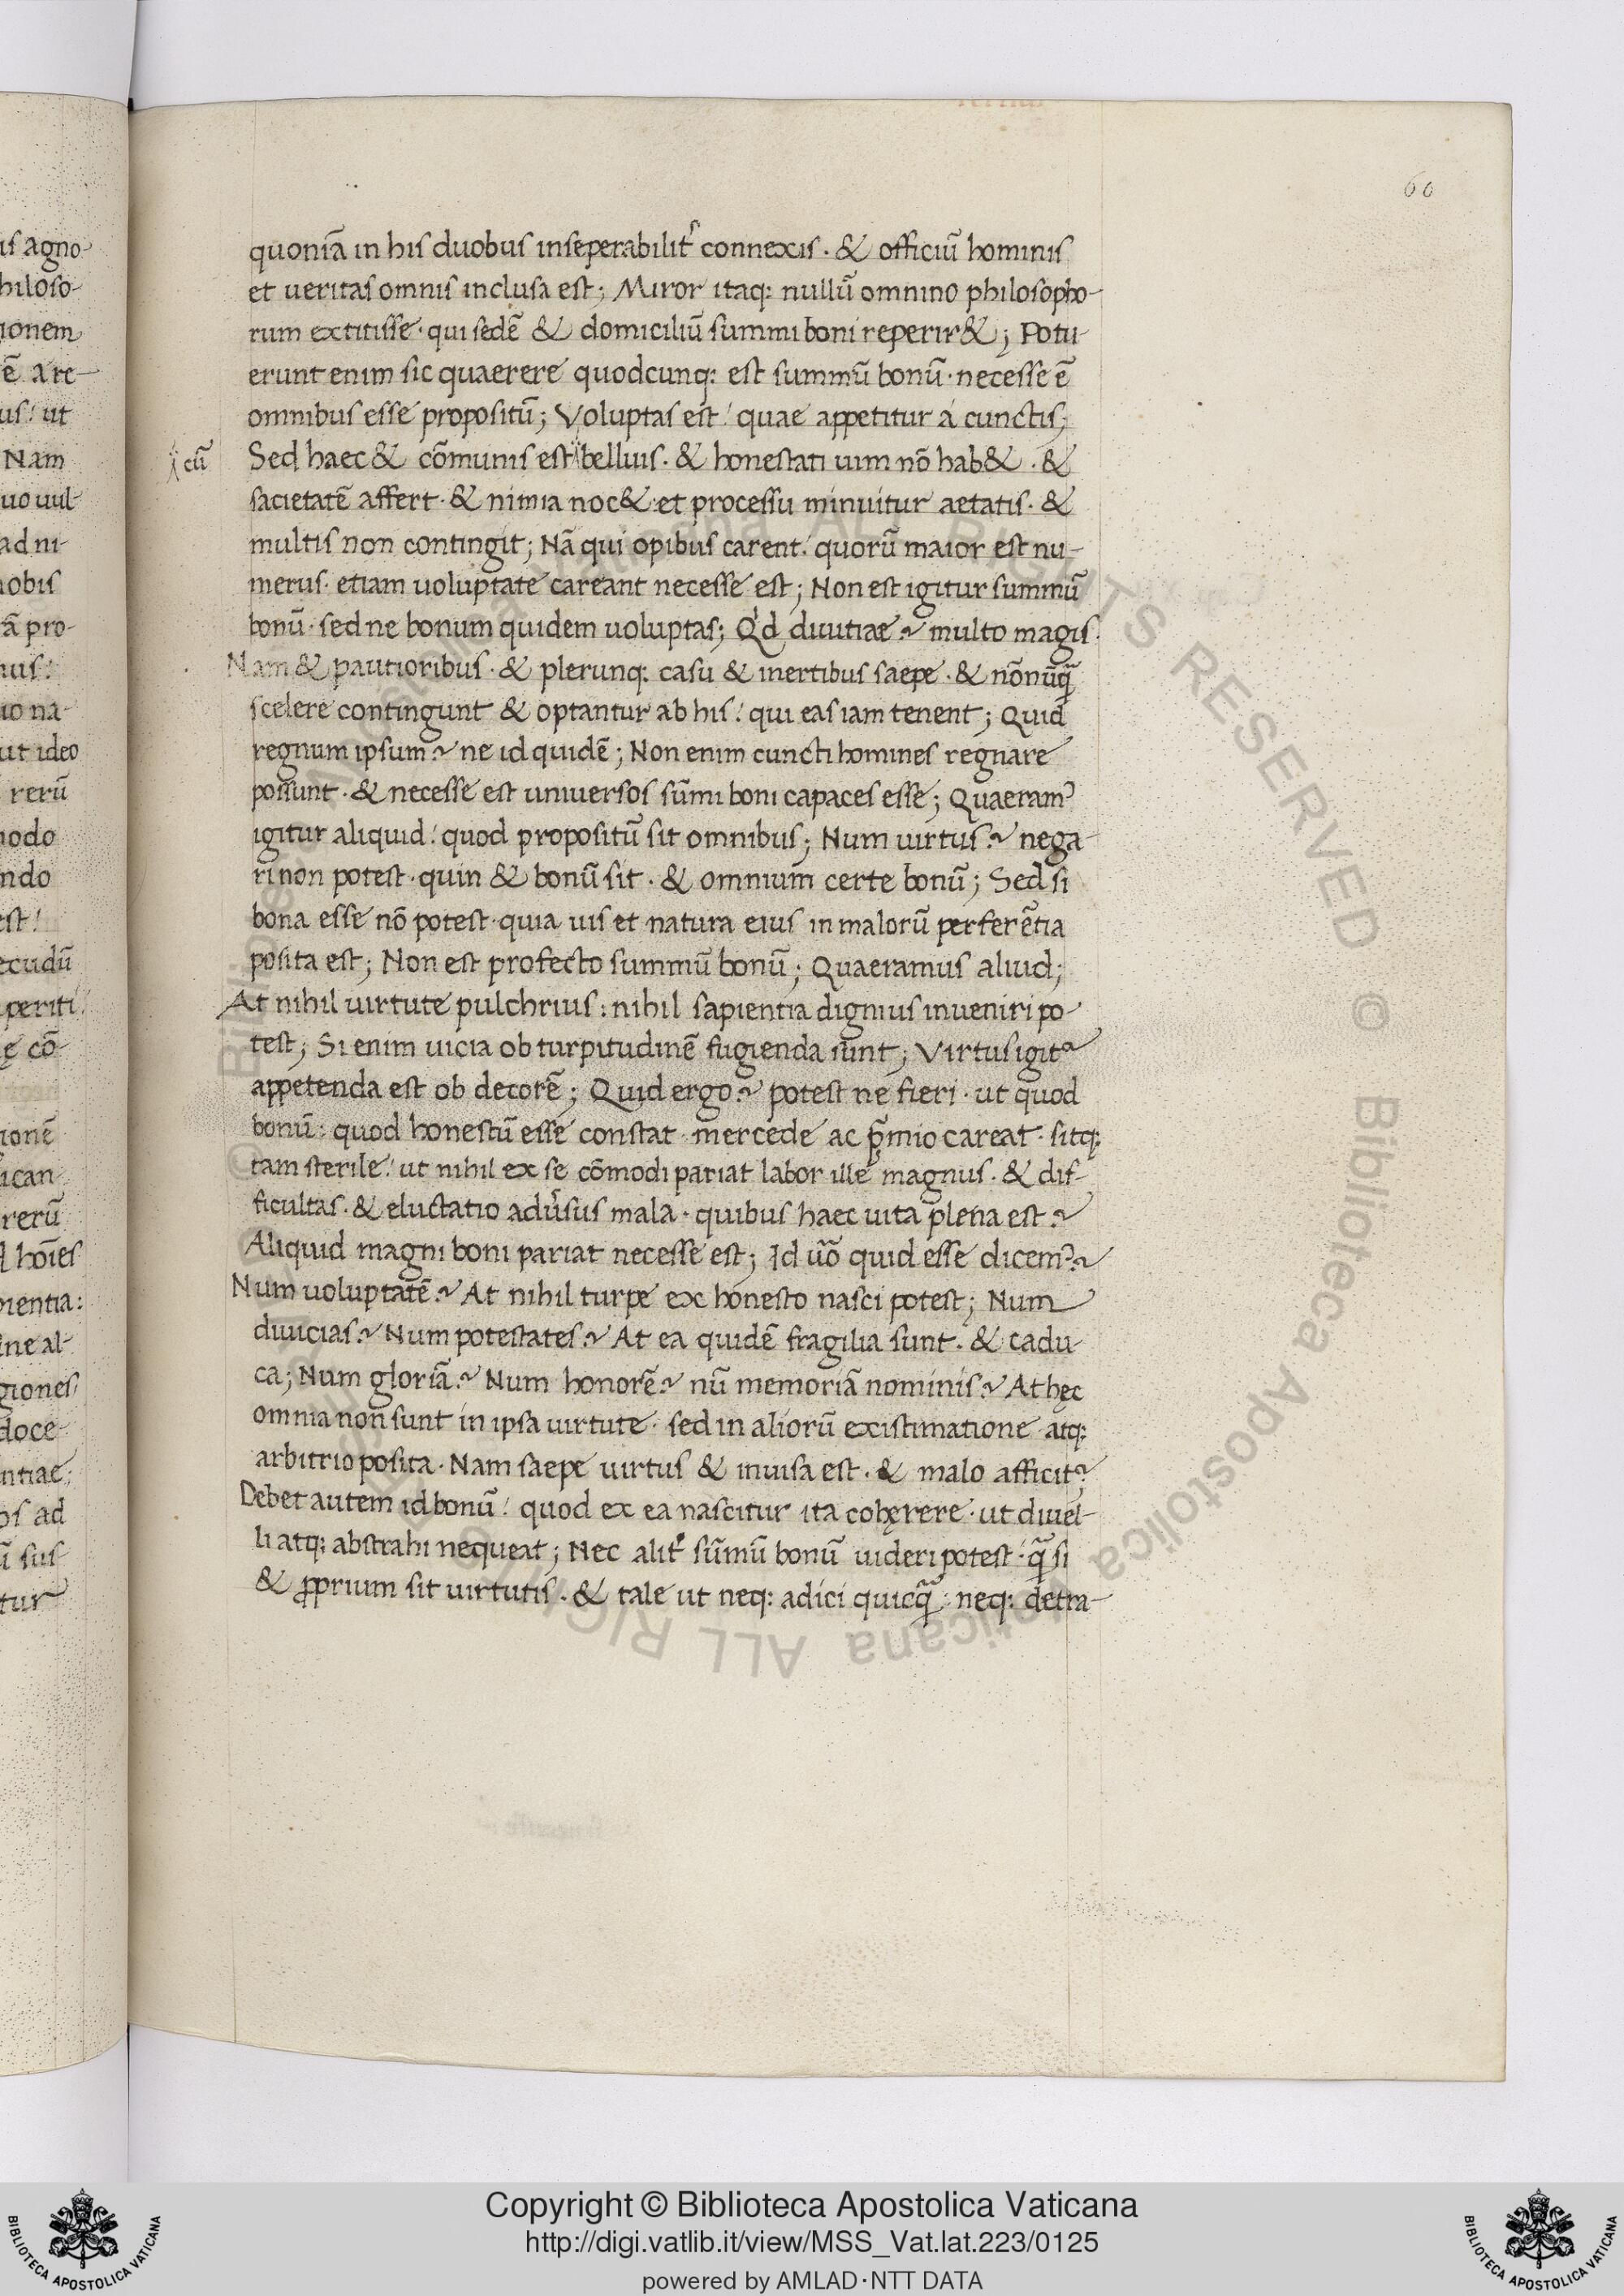 60
quoniā in his duobus inseperabilit᷑ connexis · & officiū hominis
et ueritas omnis inclusa est; Miror itaq: nullū omnino philosopho-
rum extitisse · qui sedē & domiciliū summi boni reperir&; Potu-
erunt enim sic quaerere quodcunq: est summū bonū · necesse ē
omnibus esse propositū; Voluptas est! quae appetitur á cunctis;
cū
Sed haec & cōmunis est belluis · & honestati uim nō hab& · &
sacietatē affert · & nimia noc& · et processu minuitur aetatis · &
multis non contingit; Nā qui opibus carent! quorū maior est nu-
merus · etiam uoluptate careant necesse est; Non est igitur summū
bonū · sed ne bonum quidem uoluptas; Qd́ diuitiae? multo magis.
Nam & pautioribus · & plerunq: casu & inertibus saepe · & nōnūq̄
scelere contingunt & optantur ab his! qui eas iam tenent; Quid
regnum ipsum? ne id quidē; Non enim cuncti homines regnare
possunt · & necesse est uniuersos sūmi boni capaces esse; Quaeram᷒
igitur aliquid! quod propositū sit omnibus; Num uirtus? nega-
ri non potest · quin & bonū sit · & omnium certe bonū; Sed si
bona esse nō potest · quia uis et natura eius in malorū perferētia
posita est; Non est profecto summū bonū; Quaeramus aliud;
At nihil uirtute pulchrius: nihil sapientia dignius inueniri po-
test; Si enim uicia ob turpitudinē fugienda sunt; Virtus igit᷑
appetenda est ob decorē; Quid ergo? potest ne fieri · ut quod
bonū: quod honestū esse constat · mercede ac p̄mio careat · sitq:
tam sterile! ut nihil ex se cōmodi pariat labor ille magnus · & dif-
ficultas · & eluctatio adu᷑sus mala · quibus haec uita plena est?
Aliquid magni boni pariat necesse est; Id uō quid esse dicem᷒?
Num uoluptatē? At nihil turpe ex honesto nasci potest; Num
diuicias? Num potestates? At ea quidē fragilia sunt · & cadu-
ca; Num gloriā? Num honorē? nū memoriā nominis? At hęc
omnia non sunt in ipsa uirtute · sed in aliorū existimatione · atq:
arbitrio posita · Nam saepe uirtus & inuisa est · & malo afficit᷑
Debet autem id bonū! quod ex ea nascitur ita cohęrere · ut diuel-
li atq: abstrahi nequeat; Nec alit᷑ sūmū bonū uideri potest · q̄ si
& ꝓprium sit uirtutis · & tale ut neq: adici quicq̄ : neq: detra-
Copyright © Biblioteca Apostolica Vaticana
http://digi.vatlib.it/view/MSS_Vat.lat.223/0125
powered by AMLAD·NTT DATA